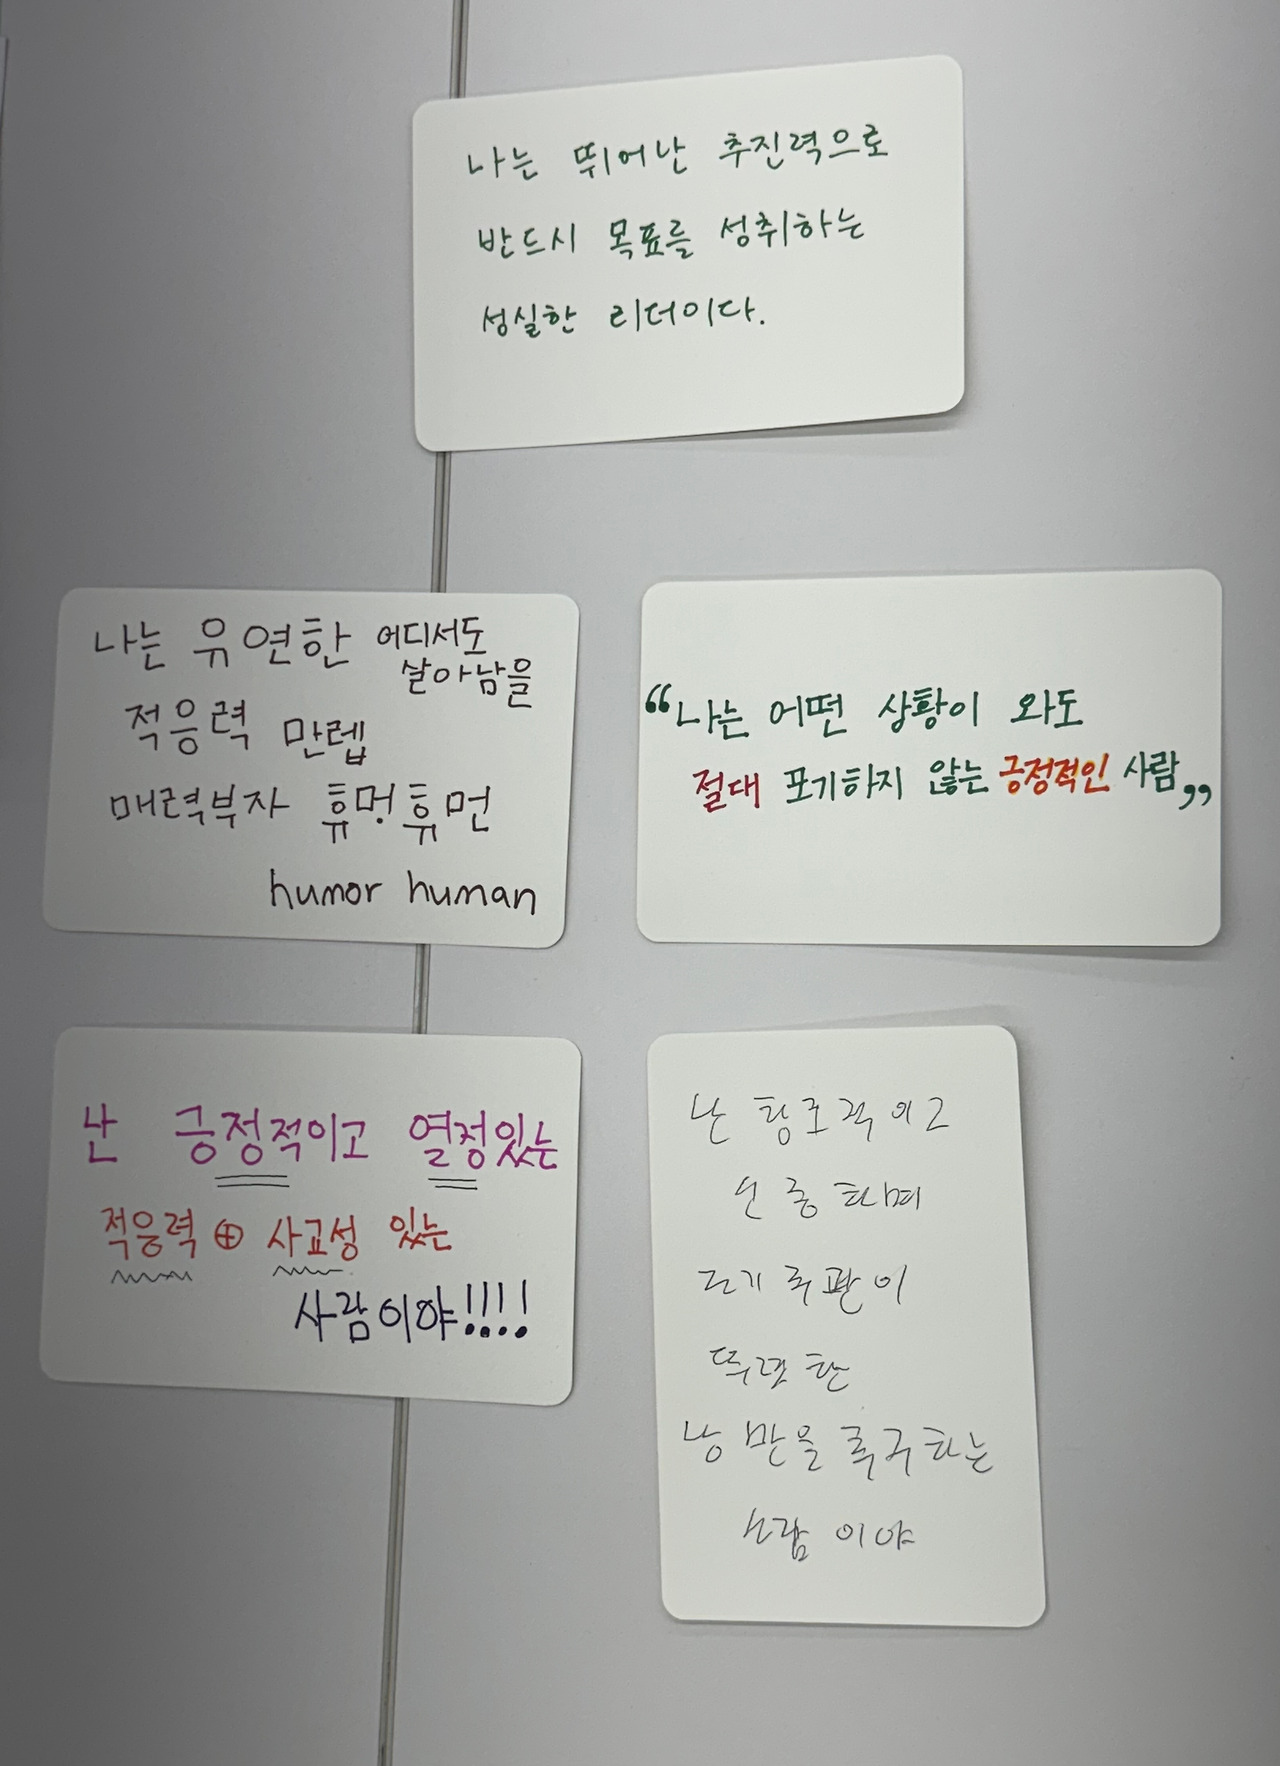 나는 뛰어난 추진력으로
반드시 목표를 성취하는
성실한 리더이다.
나는 유연한 어디서도
살아남을
적응력 만렙
매력부자 휴멍휴먼
humor human
“나는 어떤 상황이 와도
절대 포기하지 않는 긍정적인 사람”
난 긍정적이고 열정있는
적응력 ⊕ 사교성 있는
사람이야!!!!
난 창조적이고
신중하며
자기 주관이
뚜렷한
낭만을 추구하는
사람이야